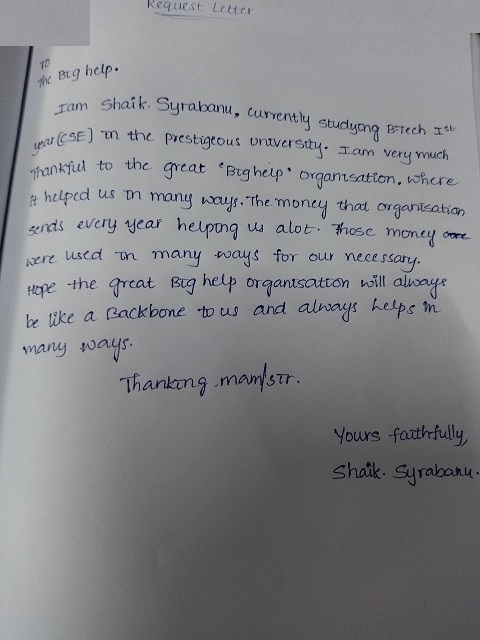 Request Letter
To
The Big help.
I am Shaik. Syrabanu, currently studying B.Tech Ist
year[CSE] in the prestigeous university. I am very much
thankful to the great "Bighelp" organisation, where
it helped us in many ways. The money that organisation
sends every year helping us alot. Those money
were used in many ways for our necessary.
Hope the great Big help organisation will always
be like a Backbone to us and always helps in
many ways.
Thanking mam/sir.
Yours faithfully,
Shaik. Syrabanu.